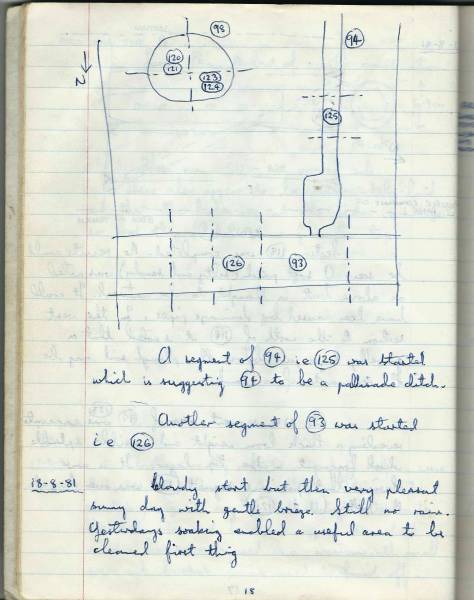 98
94
N
120
121
123
124
125
126
93
A segment of 94 i.e 125 was started
which is suggesting 94 to be a pallisade ditch.
Another segment of 93 was started
i.e 126
18-8-81 Cloudy start but then very pleasant
sunny day with gentle brieze. Still no rain.
Yesterdays soaking enabled a useful area to be
cleaned first thing
18